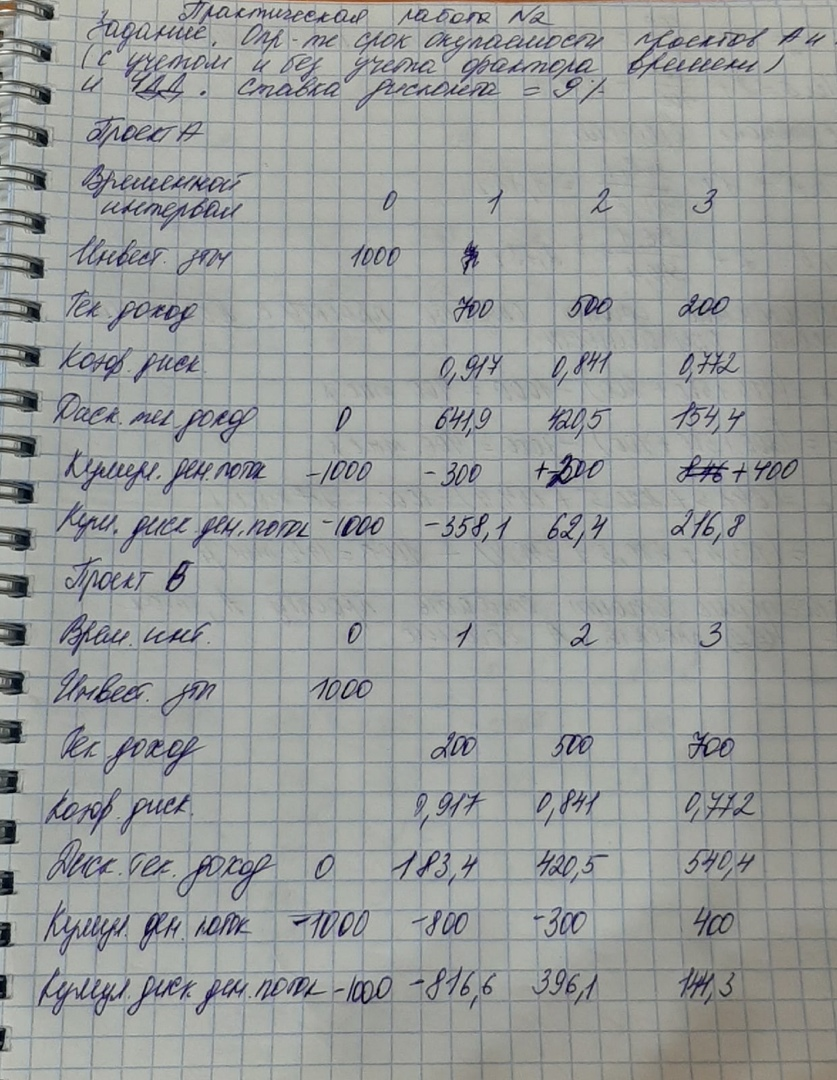 Практическая работа №2
Задание. Опр-те срок окупаемости проектов А и
(с учетом и без учета фактора времени)
и ЧДД. Ставка дисконта = 9%
Проект А
Временной
интервал 0 1 2 3
Инвест. зтп 1000
Тек. доход 700 500 200
Коэф. диск. 0,917 0,841 0,772
Диск. тек. доход 0 641,9 420,5 154,4
Кумул. ден. поток -1000 -300 +200 +400
Кум. диск ден. поток -1000 -358,1 62,4 216,8
Проект Б
Врем. инт. 0 1 2 3
Инвест. зтп 1000
Тек доход 200 500 700
Коэф. диск. 0,917 0,841 0,772
Диск. тек. доход 0 183,4 420,5 540,4
Кумул. ден. поток -1000 -800 -300 400
Кумул. диск ден. поток -1000 -816,6 396,1 144,3